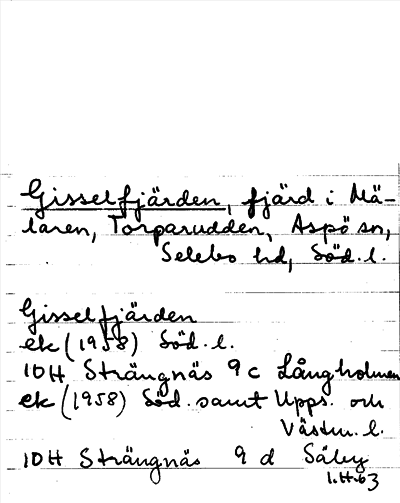 Gisselfjärden, fjärd i Mä-
laren, Torparudden, Aspö sn,
Selebo hd, Söd. l.
Gisselfjärden
ek (1958) Söd. l.
10H Strängnäs 9 c Långholmen
ek (1958) Söd. samt Upps. och
Västm. l.
10H Strängnäs 9 d Säby